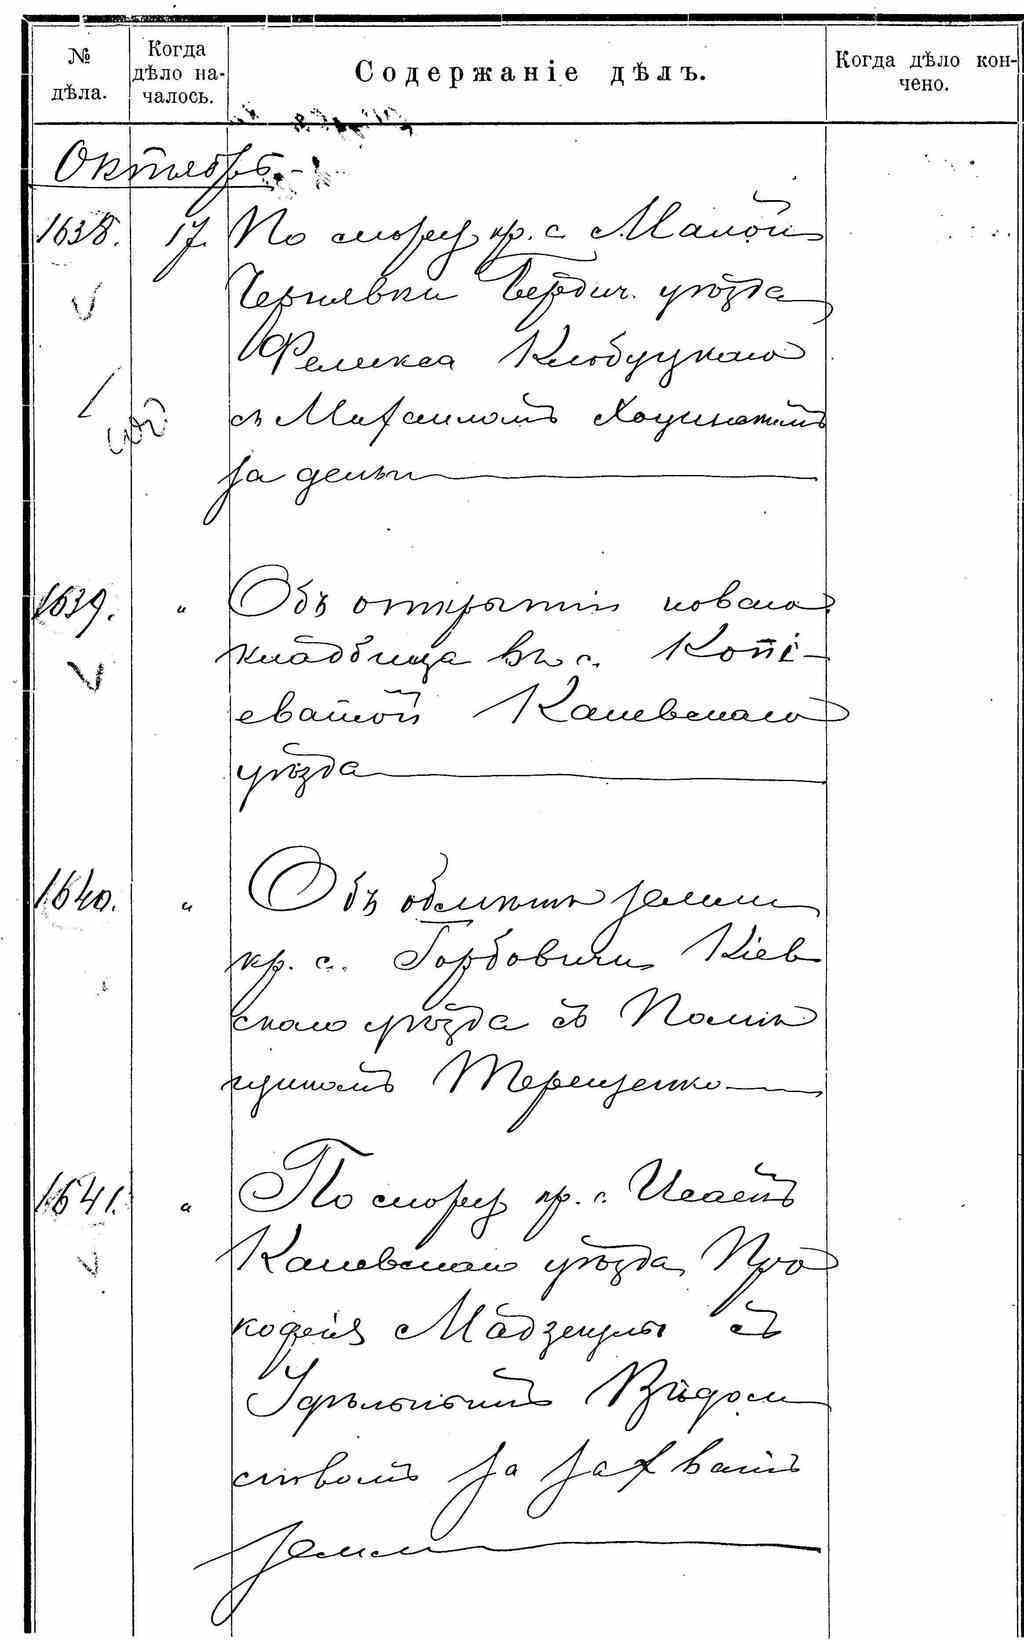 № дѣла.
Когда дѣло началось.
Содержаніе дѣлъ.
Когда дѣло кончено.
Октябрь
1638. 17. По спору кр. с. Малой
Чернявки Бердич. уѣзда
Феликса Клобуцкаго
съ Михаиломъ
за деньги
1639. " Объ открытіи новаго
кладбища въ с. Копі-
еватой Каневскаго
уѣзда
1640. " Объ обмѣнѣ земли
кр. с. Горбовичи Кіев
скаго уѣзда съ Помѣ
щикомъ Терещенко
1641. " По спору кр. с. Исаекъ
Каневскаго уѣзда Про
кофія Мадзецулы съ
Удѣльнымъ Вѣдом
ствомъ за захватъ
земли